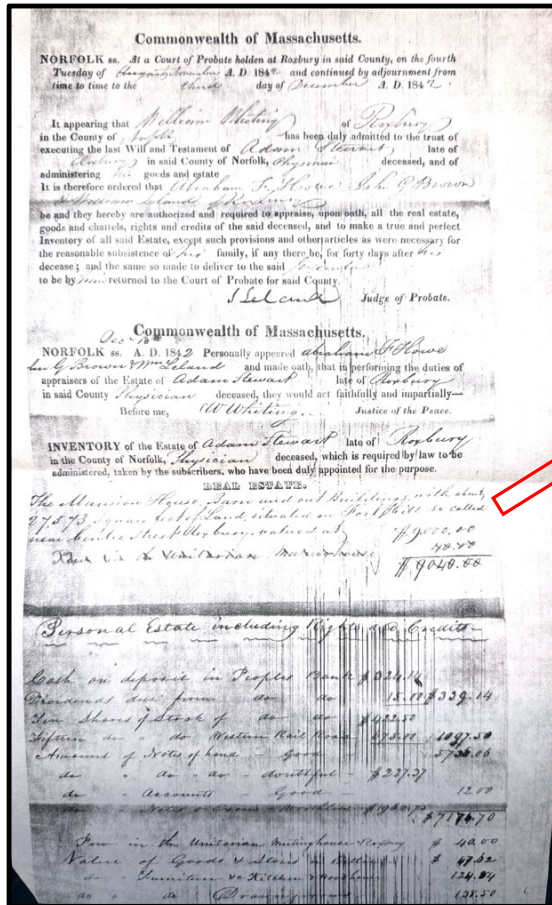 Commonwealth of Massachusetts.
NORFOLK ss. At a Court of Probate holden at Roxbury in said County, on the fourth
Tuesday of November A. D. 1842 and continued by adjournment from
time to time to the third day of December A. D. 1842.
It appearing that William Whiting of Roxbury
in the County of Norfolk has been duly admitted to the trust of
executing the last Will and Testament of Adam Stewart, late of
Roxbury in said County of Norfolk, Physician deceased, and of
administering his goods and estate
It is therefore ordered that Abraham F. Howe John G Brown
& William Leland of Roxbury
be and they hereby are authorized and required to appraise, upon oath, all the real estate,
goods and chattels, rights and credits of the said deceased, and to make a true and perfect
Inventory of all said Estate, except such provisions and other particles as were necessary for
the reasonable subsistence of his family, if any there be, for forty days after his
decease; and the same so made to deliver to the said
to be by him returned to the Court of Probate for said County.
S Leland Judge of Probate.
Commonwealth of Massachusetts.
Dec 10th
NORFOLK ss. A. D. 1842 Personally appeared Abraham F Howe
G Brown & Wm Leland and made oath, that in performing the duties of
appraisers of the Estate of Adam Stewart late of Roxbury
in said County Physician deceased, they would act faithfully and impartially—
Before me, W Whiting. Justice of the Peace.
INVENTORY of the Estate of Adam Stewart late of Roxbury
in the County of Norfolk, Physician deceased, which is required by law to be
administered, taken by the subscribers, who have been duly appointed for the purpose.
REAL ESTATE.
The Mansion House, Barn and out Buildings, with about
27573 Square feet of Land, situated on Fort Hill so called
near Centre Street Roxbury, valued at $9,000.00
40.00
$9040.00
Personal Estate including Rights and Credits
Cash on deposit in Peoples Bank $324.14
Dividends due from do do 15.00 $339.14
Ten Shares of Stock of do do $422.50
Fifteen do " do Western Rail Road 675.00 1097.50
Amount of Notes of hand Good
do " do " do - doubtful - $227.37
do " Accounts - Good - 12.00
$7174.70
Pew in the Unitarian Meetinghouse Roxbury $ 40.00
Value of Goods & Stores in $ 47.62
do " Furniture &c Kitchen &
do " do Drawing room 138.50